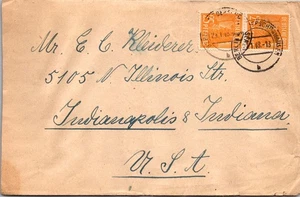 Mr. E. C. Kleiderer.
5105 N Illinois Str.
Indianapolis & Indiana
U.S.A